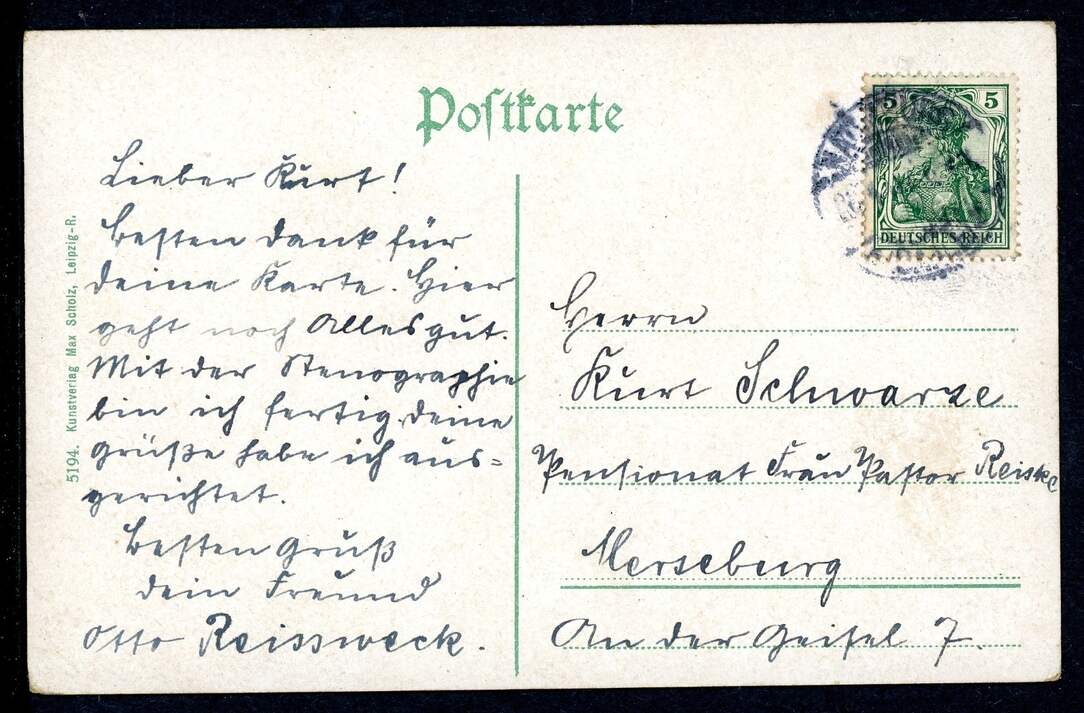 Postkarte
Lieber Kurt!
Besten Dank für
deine Karte. Hier
geht noch Alles gut.
Mit der Stenographie
bin ich fertig. Deine
Grüße habe ich aus=
gerichtet.
Besten Gruß
dein Freund
Otto Reissweck.
5194. Kunstverlag Max Scholz, Leipzig-R.
5 5
DEUTSCHES REICH
Herrn
Kurt Schwarze
Pensionat Frau Pastor Reiske
Merseburg
An der Geisel 7.